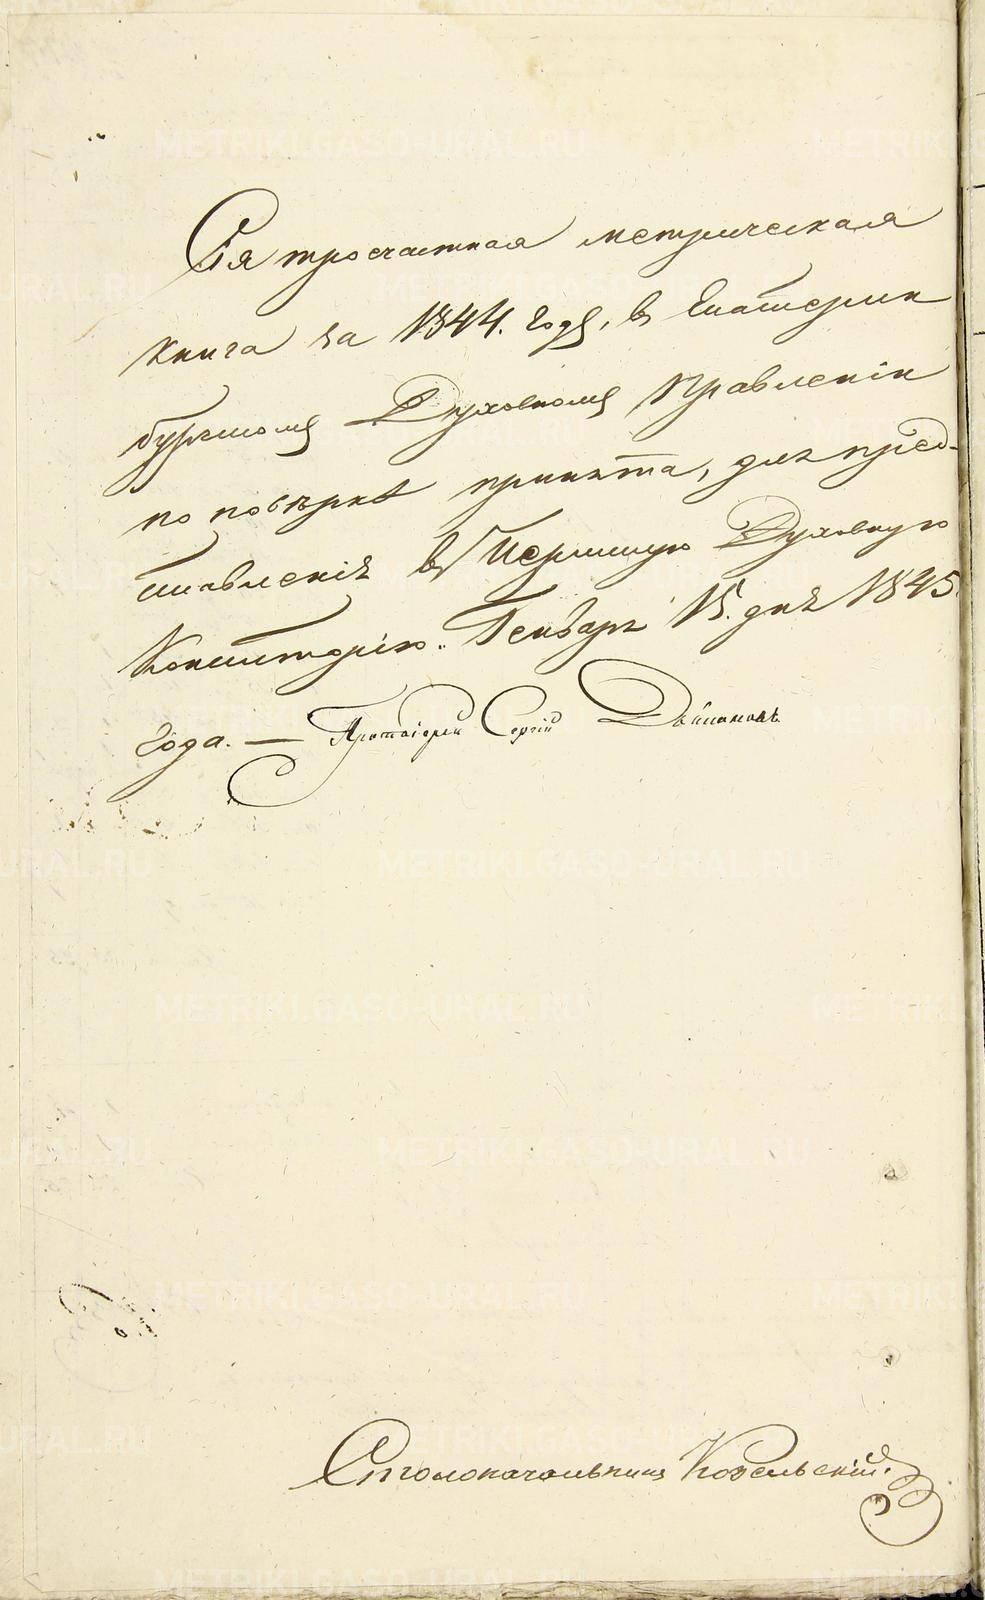 Сія трехчастная метрическая
книга за 1844. годъ, въ Екатерин
бургскомъ Духовномъ Правленіи
по повѣркѣ принята, для пред-
ставленія въ Пермскую Духовную
Консисторію. Генваря 15. дня 1845.
года. — Протоіерей Сергій
Столоначальникъ Козельскій.